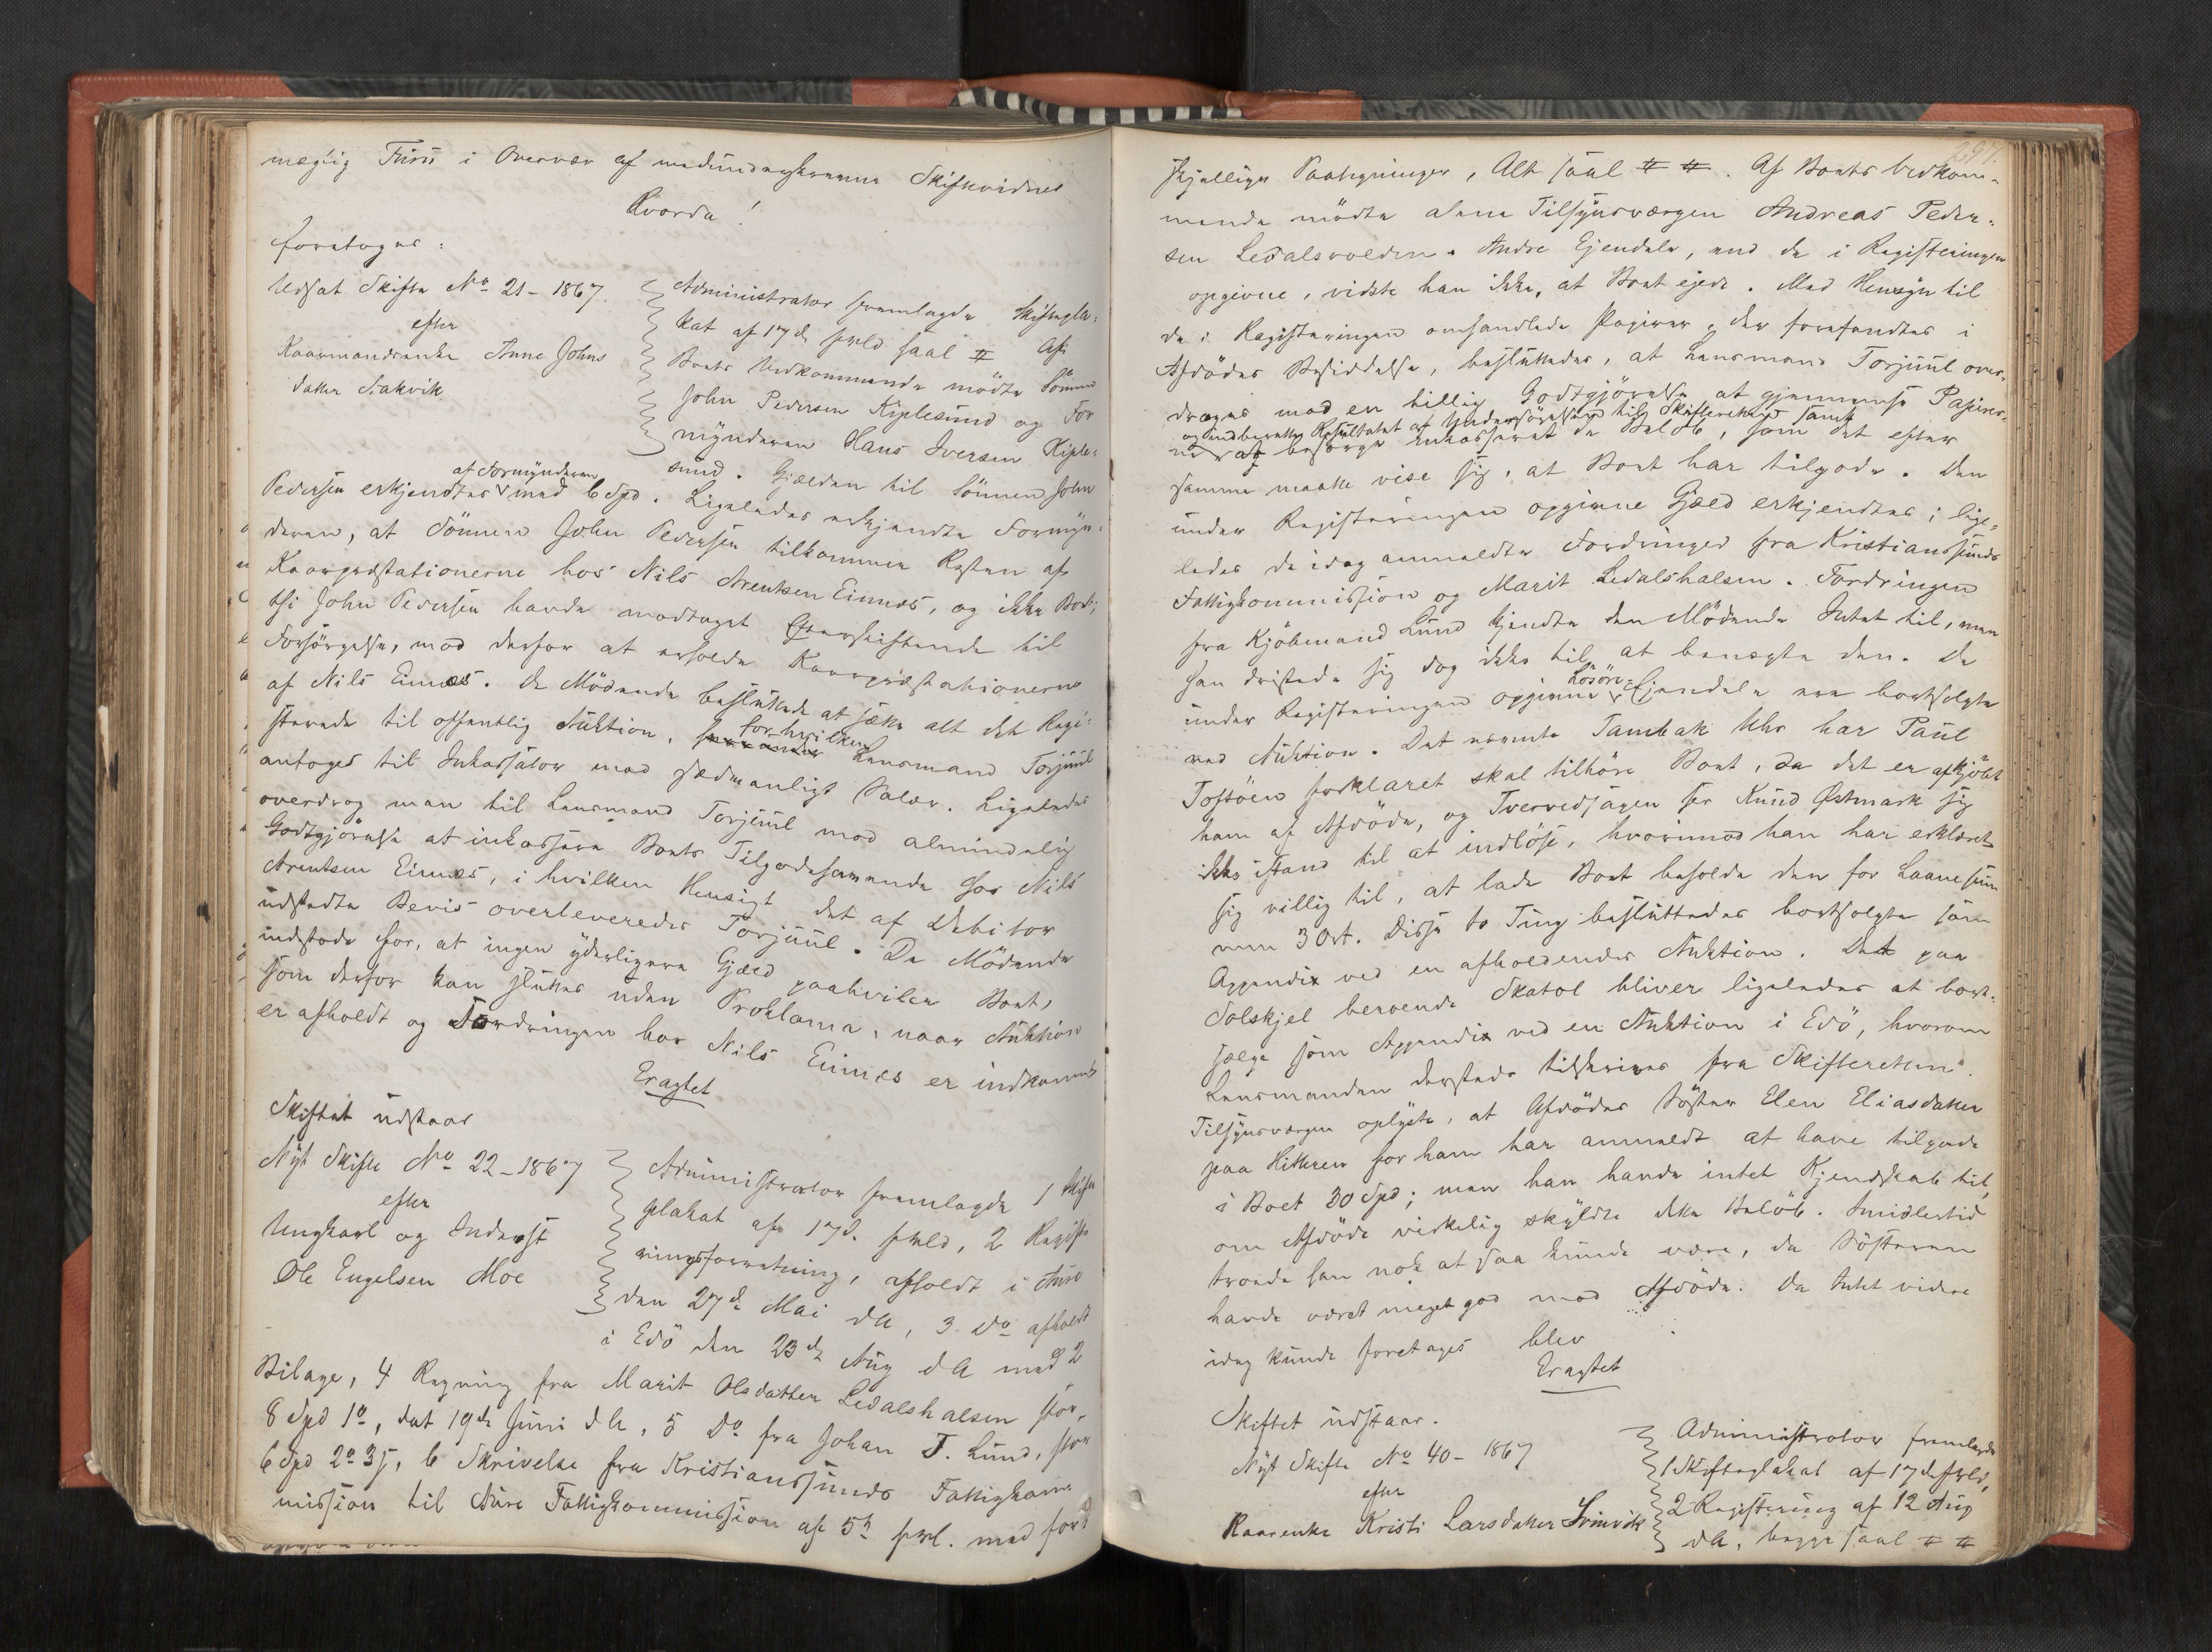 mægtig Furu i Overvær af medundertegnede Skiftevidner
Hvorda!
foretoges:
Udsat Skifte No 21-1867
efter
Kaarmandsenke Anne Johns
datter Nakvik
Administrator fremlagde Skiftepla-
kat af 17de f.M. saal # Af
Boets Vedkommende mödte Sönnen
John Pedersen Kiplesund og For
mynderen Hans Iversen Kiple-
sund. Gjælden til Sönnen John
Pedersen erkjendtes af Formynderen med 6 Spd. Ligeledes erkjendte Formyn-
deren, at Sönnen John Pedersen tilkommer Resten af
Kaarpræstationerne hos Nils Arentsen Einnes, og ikke Boet;
thi John Pedersen havde modtaget Efterskiftende til
Forsörgelse, mod derfor at erholde Kaarpræstationerne
af Nils Einnæs. De Mödende besluttede at sælge alt det Regi-
strerede til offentlig Auktion, for hvilken Lensmand Torjuul
antoges til Inkassator mod sædvanligt Salær. Ligeledes
overdrog man til Lensmand Torjuul mod almindelig
Godtgjörelse at inkassere Boets Tilgodehavende hos Nils
Arentsen Einnæs, i hvilken Hensigt det af Debitor
udstedte Bevis overleveredes Torjuul. De Mödende
indstode for, at ingen yderligere Gjæld paahviler Boet,
som derfor kan sluttes uden Proklama, naar Auktion
er afholdt og Fordringen hos Nils Einnæs er indkommet
Eragtet
Skiftet udstaar
Nyt Skifte No 22-1867
efter
Ungkarl og Inderst
Ole Engelsen Moe
Administrator fremlagde 1 Skifte
plakat af 17d. f.M., 2 Registe
ringsforretning, afholdt i Aure
den 27de Mai d.A, 3 Do afholdt
i Edö den 23de Aug d A med 2
Bilage, 4 Regning fra Marit Olsdatter Ledalshalsen stor,
8 Spd 1o, dat 19de Juni d.A, 5 Do fra Johan F. Lund, stor
6 Spd 2o 3s, 6 Skrivelse fra Kristianssunds Fattigkom
mission til Aure Fattigkommission af 5te f.M. med for-
297.
skjellige Paategninger, Alt saal # #. Af Boets Vedkom-
mende mödte alene Tilsynsværgen Andreas Peder-
sen Ledalsvolden. Andre Ejendele, end de i Registeringen
opgivne, vidste han ikke, at Boet ejede. Med Hensyn til
de i Registeringen omhandlede Papirer, der forefandtes i
Afdödes Besiddelse, besluttedes, at Lensmand Torjuul over-
droges mod en billig Godtgjörelse at gjennemse Papirer-
og indberette Resultatet af Undersögelsen til Skifteretten samt
ne at besörge inkasseret de Belöb, som det efter
samme maatte vise sig, at Boet har tilgode. Den
under Registeringen opgivne Gjæld erkjendtes; lige-
ledes de idag anmeldte Fordringer fra Kristianssunds
Fattigkommission og Marit Ledalshalsen. Fordringen
fra Kjöbmand Lund kjendte den Mödende Intet til, men
han dristede sig dog ikke til at benægte den. De
under Registeringen opgivne Lösöre-Ejendele ere bortsolgte
ved Auktion. Det nævnte Tambak Uhr har Paul
Tostöen forklaret skal tilhöre Boet, da det er afkjöbt
ham af Afdöde, og Tvervedsagen ser Knud Østmark sig
ikke istand til at indlöse, hvorimod han har erklæret
sig villig til, at lade Boet beholde den for Laanesum
men 3 Ort. Disse to Ting besluttedes bortsolgte som
Appendix ved en afholdendes Auktion. Det paa
Solskjel beroende Skatol bliver ligeledes at bort-
sælge som Appendix ved en Auktion i Edö, hvorom
Lensmanden dersteds tilskrives fra Skifteretten.
Tilsynsværgen oplyste, at Afdödes Söster Elen Eliasdatter
paa Hitteren for ham har anmeldt at have tilgode
i Boet 30 Spd; men han havde intet Kjendskab til,
om Afdöde virkelig skyldte dette Belöb. Imidlertid
troede han nok at saa kunde være, da Sösteren
havde været meget god mod Afdöde. Da Intet videre
idag kunde foretages blev
Eragtet
Skiftet udstaar.
Nyt Skifte No 40-1867
efter
Kaarenke Kristi Larsdatter Svinvik
Administrator fremlagde
1 Skifteplakat af 17de f.M.,
2 Registering af 12 Aug
d A, begge saal # #